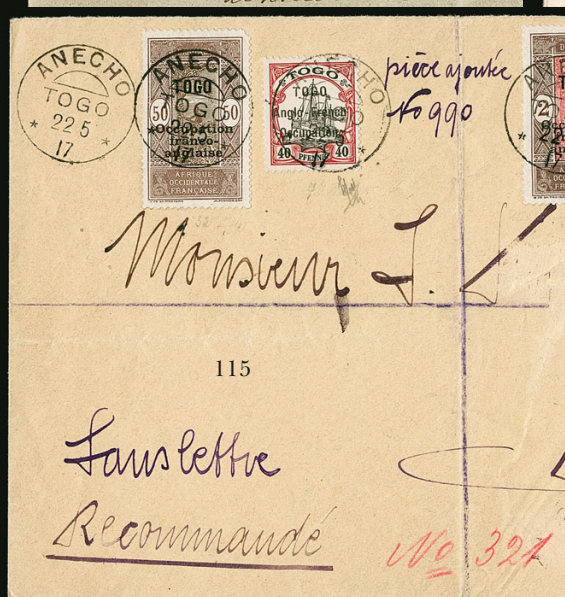 ANECHO
TOGO
22 5
17
50 TOGO 50
Occupation
franco-
anglaise
AFRIQUE
OCCIDENTALE
FRANÇAISE
ANECHO
TOGO
TOGO
Anglo-French
Occupation
40 PFENNIG 40
17
pièce ajoutée
No 990
2
Monsieur J. L
115
Sans lettre
Recommandé
No 321